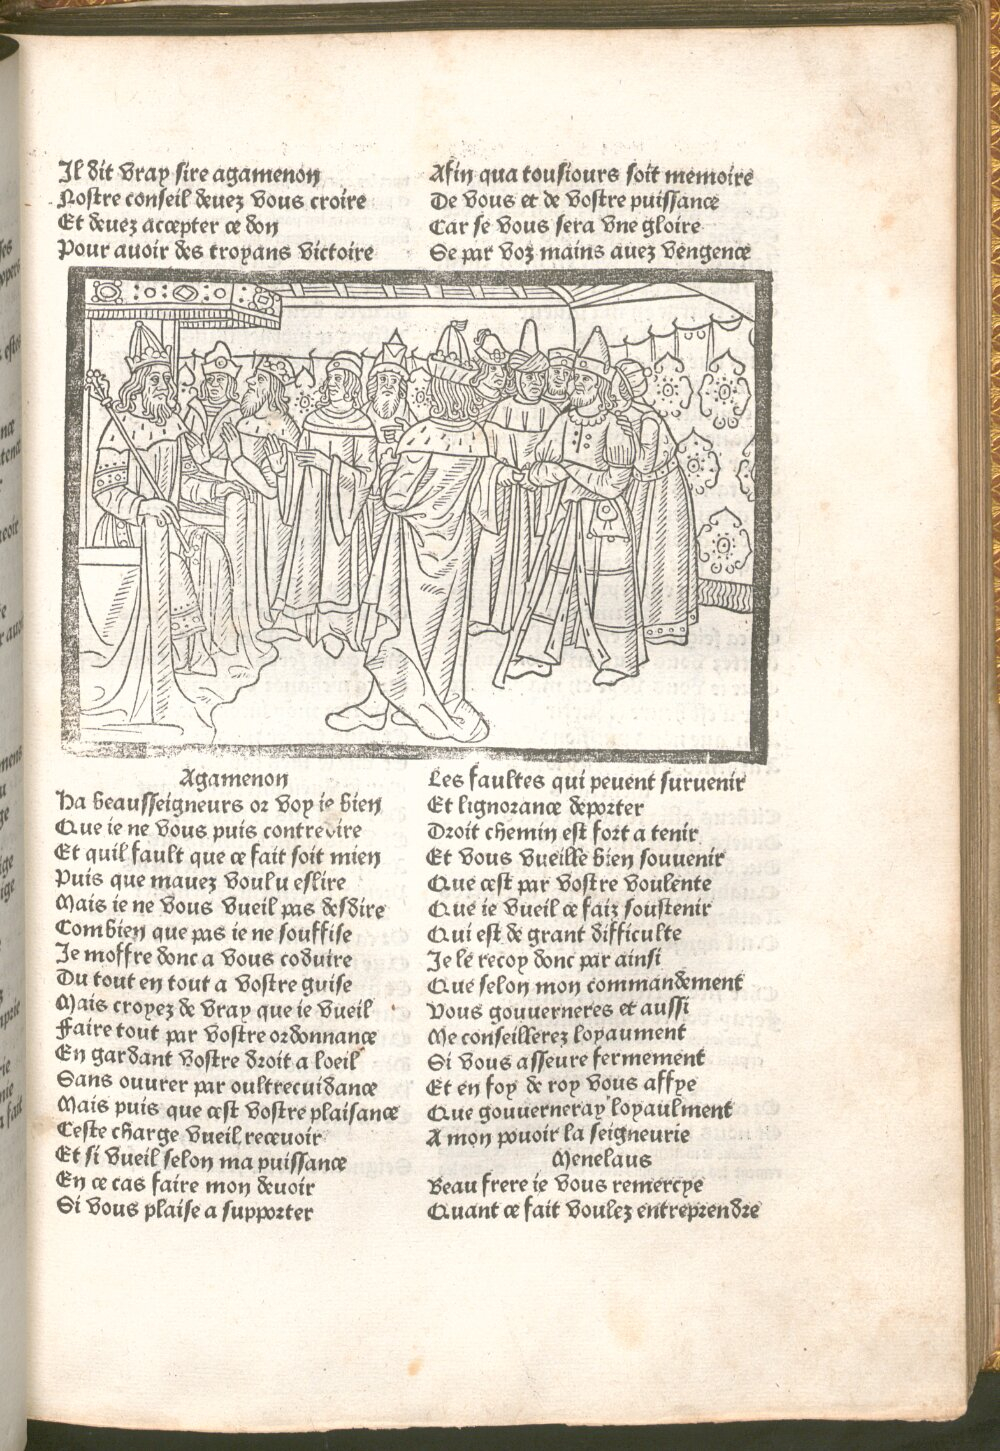 Il dit vray sire agamenon
Nostre conseil deuez vous croire
Et deuez accepter ce don
Pour auoir des troyans victoire
Afin qua tousiours soit memoire
De vous et de vostre puissance
Car se vous sera vne gloire
Se par voz mains auez vengence
Agamenon
Ha beausseigneurs or voy ie bien
Que ie ne vous puis contredire
Et quil fault que ce fait soit mien
Puis que mauez voulu eslire
Mais ie ne vous vueil pas desdire
Combien que pas ie ne souffise
Je moffre donc a vous coduire
Du tout en tout a vostre guise
Mais croyez de vray que ie vueil
Faire tout par vostre ordonnance
En gardant vostre droit a loeil
Sans ouurer par oultrecuidance
Mais puis que cest vostre plaisance
Ceste charge vueil receuoir
Et si vueil selon ma puissance
En ce cas faire mon deuoir
Si vous plaise a supporter
Les faultes qui peuent suruenir
Et lignorance deporter
Droit chemin est fort a tenir
Et vous vueille bien souuenir
Que cest par vostre voulente
Que ie vueil ce faiz soustenir
Qui est de grant difficulte
Je le recoy donc par ainsi
Que selon mon commandement
Vous gouuerneres et aussi
Me conseillerez loyaument
Si vous asseure fermement
Et en foy de roy vous affye
Que gouuerneray loyaulment
A mon pouoir la seigneurie
Menelaus
Beau frere ie vous remercye
Quant ce fait voulez entreprendre